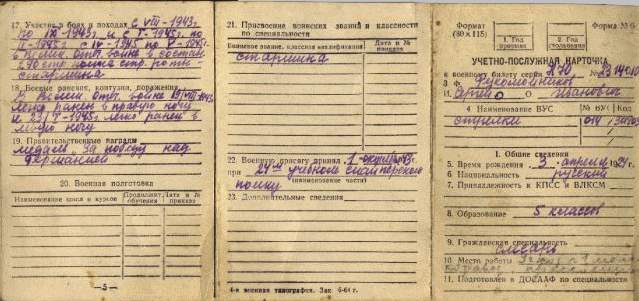 17. Участие в боях и походах с VIII-1943г.
по IX-1943г. и с I-1945г. по
II-1945г. с IV-1945 по V-1945г.
в Велик. Отеч. войне в составе
старшина
18. Боевые ранения, контузии, поражения
ранен в правую
и 23/I-1945г. легко ранен в
левую ногу
19. Правительственные награды
медаль "За победу над
Германией"
20. Военная подготовка
Наименование цикла и курсов
Продолжит. обучения
Дата и № приказа
— 5 —
21. Присвоение воинских званий и классности
по специальности
Воинское звание, классная квалификация
Дата и № приказа
старшина
22. Военную присягу принял 1 октября 43г.
при 24м учебном снайперском
полку
(наименование части)
23. Дополнительные сведения
4-я военная типография. Зак. 6-64 г.
Формат
(80×115)
Форма № 6
1. Год
призыва
2. Год
УЧЕТНО-ПОСЛУЖНАЯ КАРТОЧКА
к военному билету серии НЮ №
3. Ф. Рукомойников
И. Сергей О. Иванович
4 Наименование ВУС
№ ВУС
Код
стрелки
I. Общие сведения
5. Время рождения 3 апреля 1924г.
6. Национальность русский
7. Принадлежность к КПСС и ВЛКСМ
8. Образование 5 классов
9. Гражданская специальность
слесарь
10 Место работы
11. Подготовлен в ДОСААФ по специальности